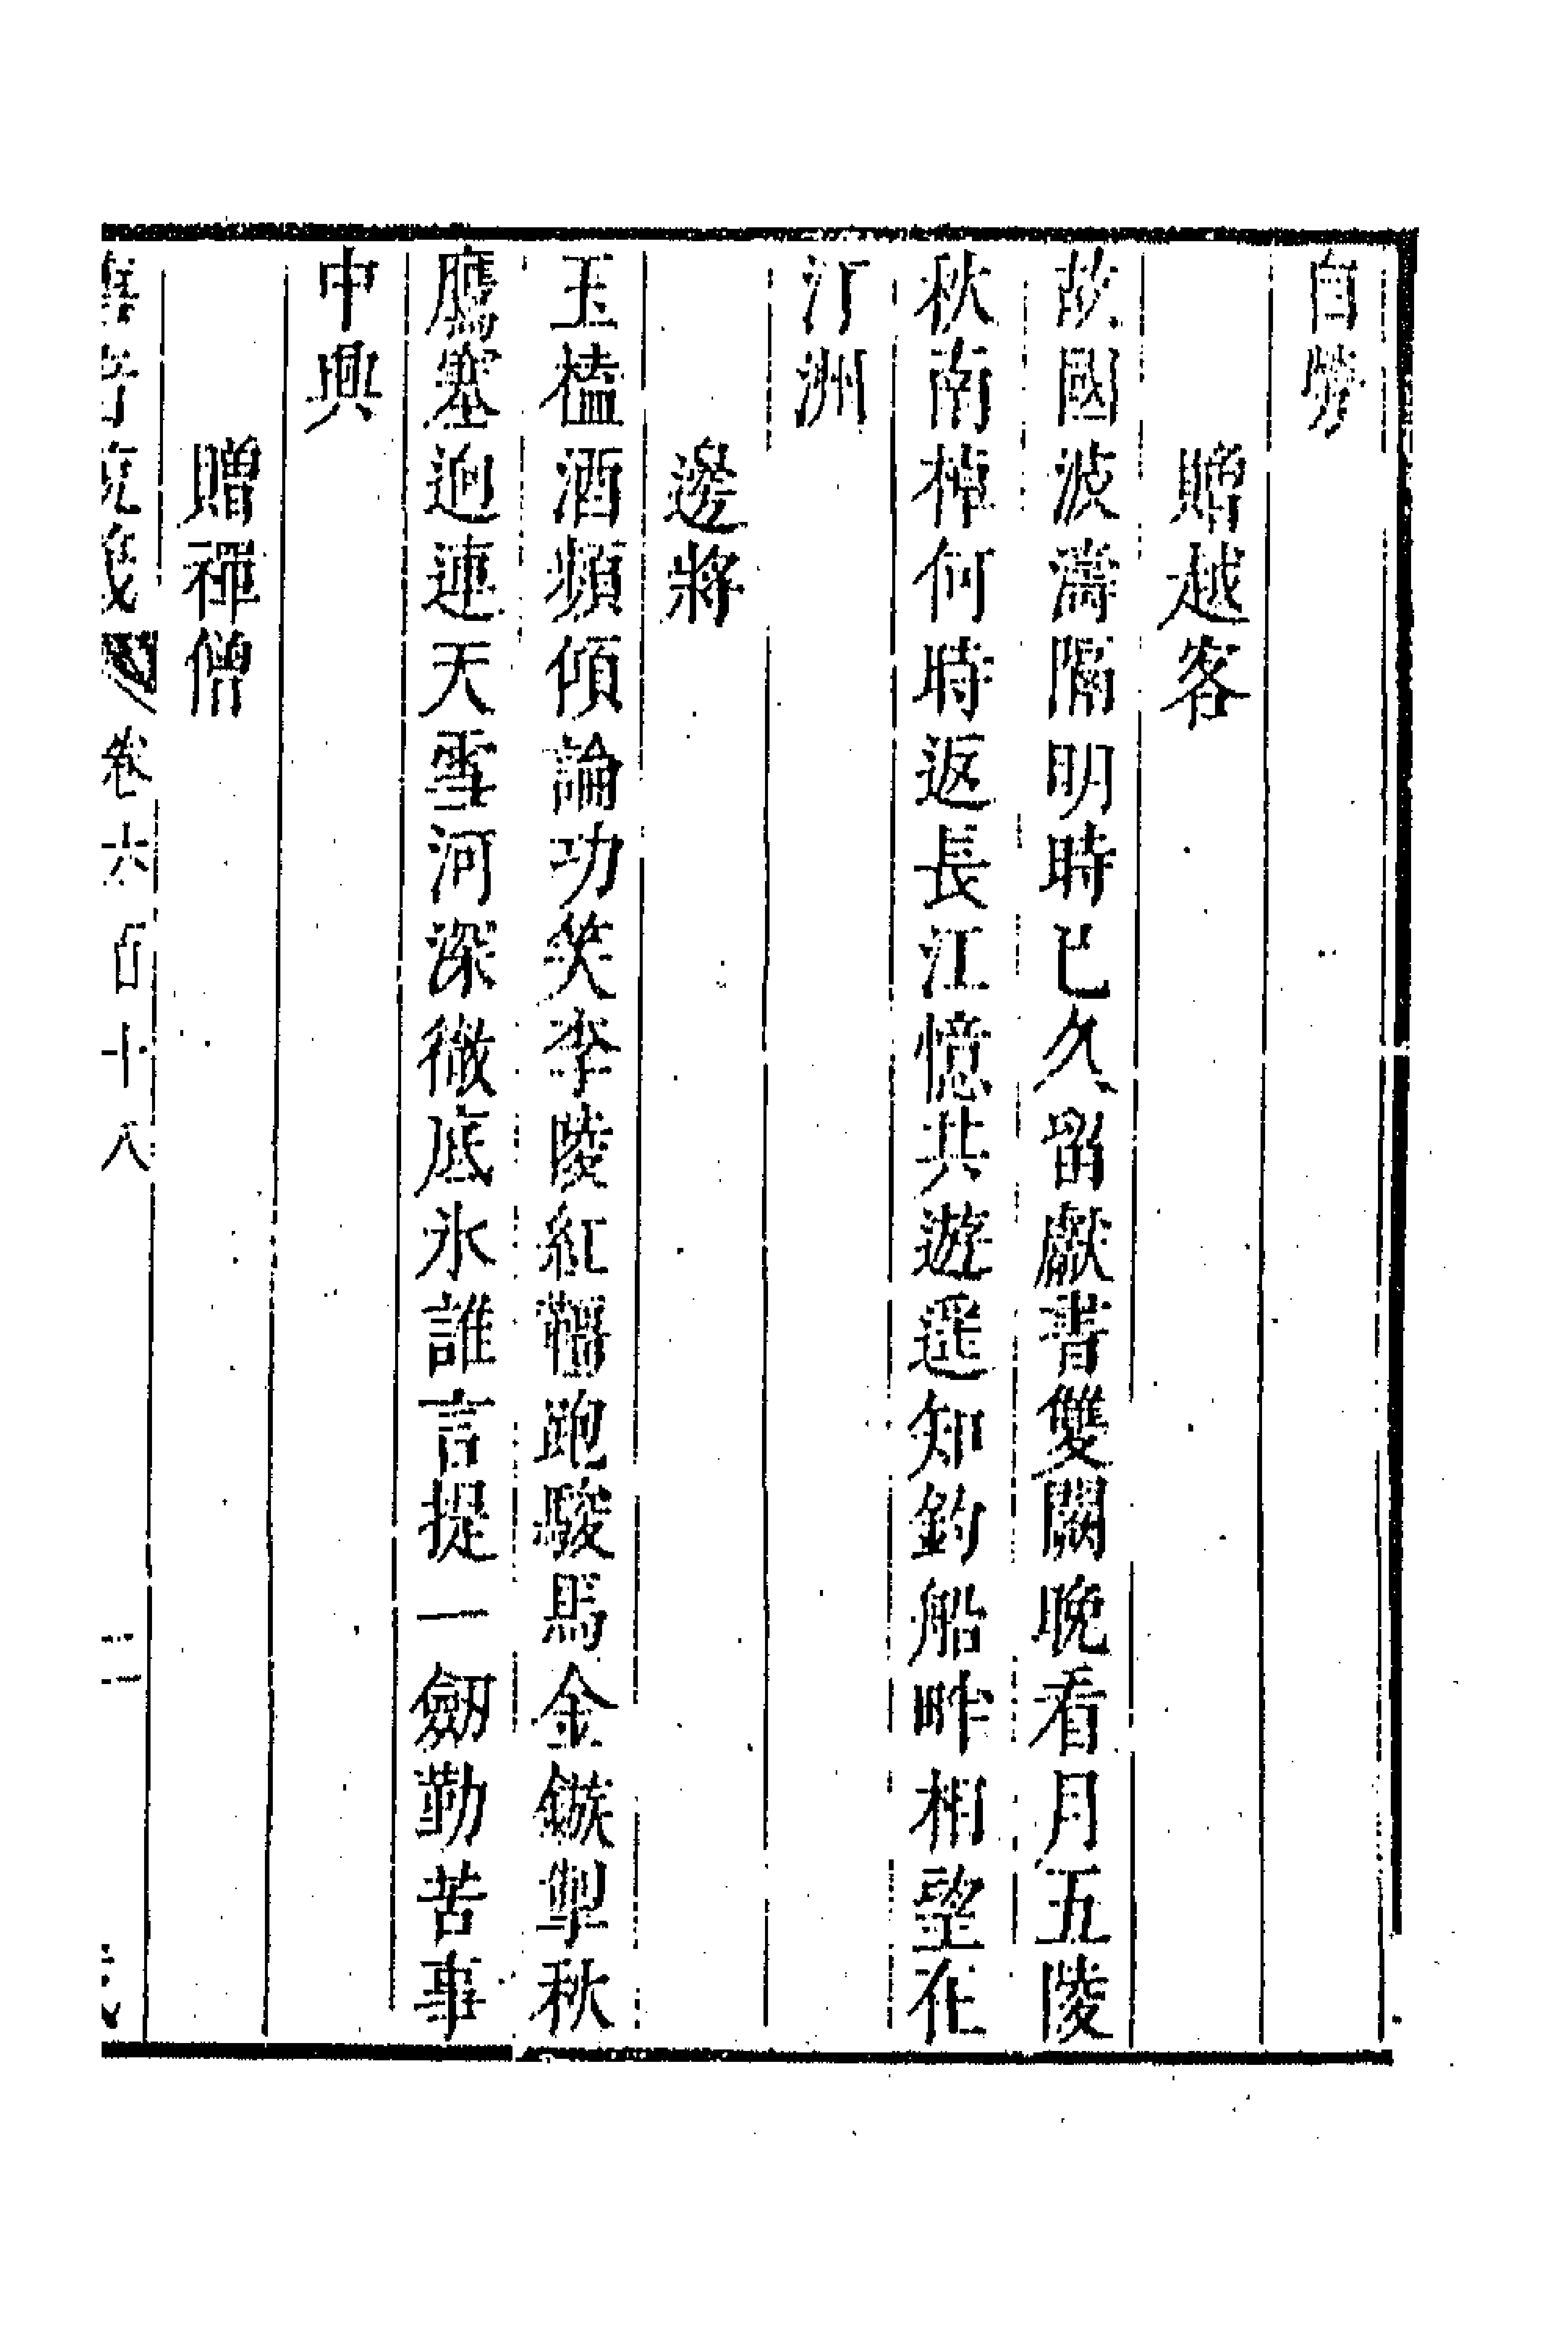 自勞
贈越客
故國波濤隔明時已久留獻書雙闕晚看月五陵
秋南棹何時返長江憶共遊遥知釣船畔相望在
汀洲
邊將
玉榼酒頻傾論功笑李陵紅韁跑駿馬金鏃掣秋
鷹塞迥連天雪河深徹底氷誰言提一劒勤苦事
中興
贈禪僧
卷六百十八 二